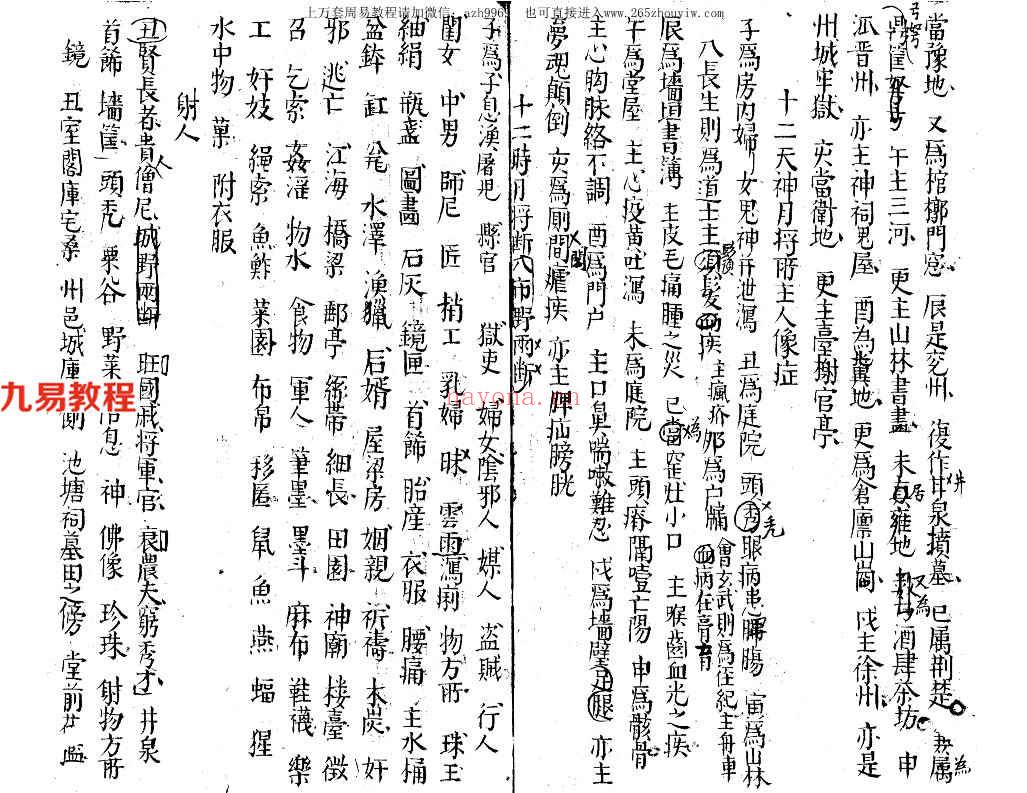 上万套周易教程请加微信：azh996 也可直接进入www.265zhouyiw.com
當豫地 又爲棺槨門窓 辰是兖州 復作甘泉墳墓 巳属荆楚
午主三河 更主山林書畫 未 雍地 酒肆茶坊 申
晋州 亦主神祠鬼屋 酉為 地 更爲倉廩山崗 戌主徐州 亦是
州城牢獄 亥當衛地 更主臺榭官亭
十二天神月將所主人像症
子爲房内婦女鬼神并泄瀉 丑爲庭院 頭禿眼病患 腸 寅爲山林
八長生則爲道士主須髮 疾 主瘋疥 卯爲户牖 會玄武則爲 主舟車 病在膏肓
辰爲墙垣書簿 主皮毛痛腫之災 巳當窑灶小口 主喉齒血光之疾
午爲堂屋 主心疫黄吐瀉 未爲庭院 主頭 膈噎亡陽 申爲骸骨
主心胸脉絡不調 酉爲門户 主口鼻喘嗽難忍 戌爲墙壁足腿 亦主
夢魂顛倒 亥爲厠間瘧疾 亦主脾疝膀胱
十二時月將断 市野兩断
子爲子息漁屠兒 縣官 獄吏 婦女陰邪人 媒人 盗賊 行人
閨女 中男 師尼 匠 梢工 乳婦 昧 雲雨瀉痢 物方所 珠玉
細絹 瓶盞 圖畫 石灰 鏡匣 首飾 胎産 衣服 腰痛 主水桶
盆鉢 缸 水澤 漁獵 后婿 屋梁房 姻親 祈禱 木炭 奸
邪 逃亡 江海 橋梁 郵亭 絲帶 細長 田園 神廟 楼臺 徵
召 乞索 姦淫 物水 食物 軍人 筆墨 墨斗 麻布 鞋襪 樂
工 奸妓 縄索 魚鮓 菜園 布帛 移匿 鼠 魚 燕 蝠 猩
水中物 菓 附衣服
射人
丑賢長者貴僧尼 城野兩断 旺國戚將軍官 衰農夫窮秀才 井泉
首飾 墙筐 頭禿 栗谷 野菜 息 神 佛像 珍珠 射物方所
鏡 丑室閣庫宅桑 州邑城庫 側 池塘祠墓田之傍 堂前井
九易教程
hayona.cn